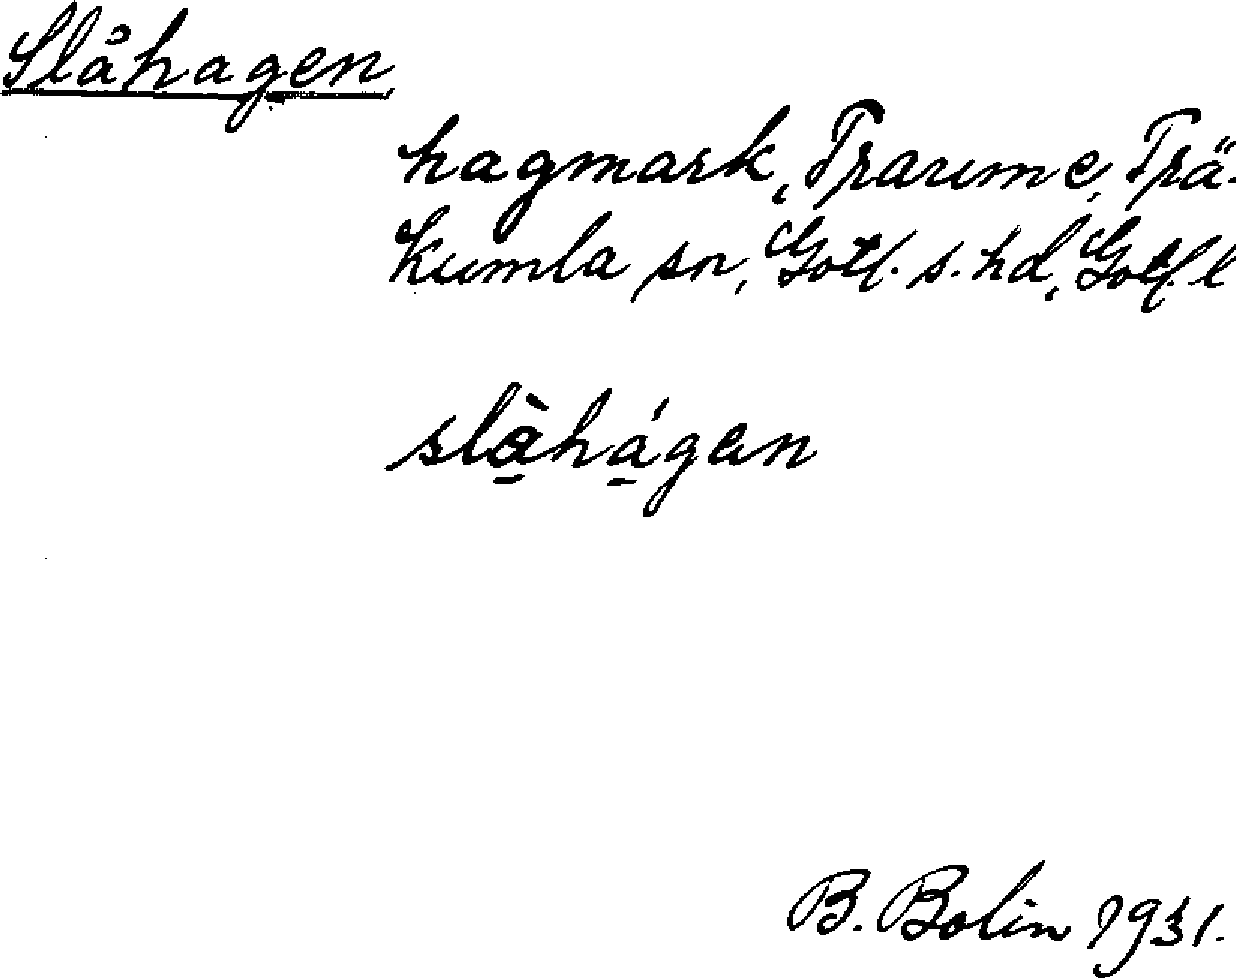 Slåhagen
hagmark, Traume, Trä-
kumla sn, Gotl. s. hd, Gotl. l
slą̀hą́gen
B. Bolin 1931.